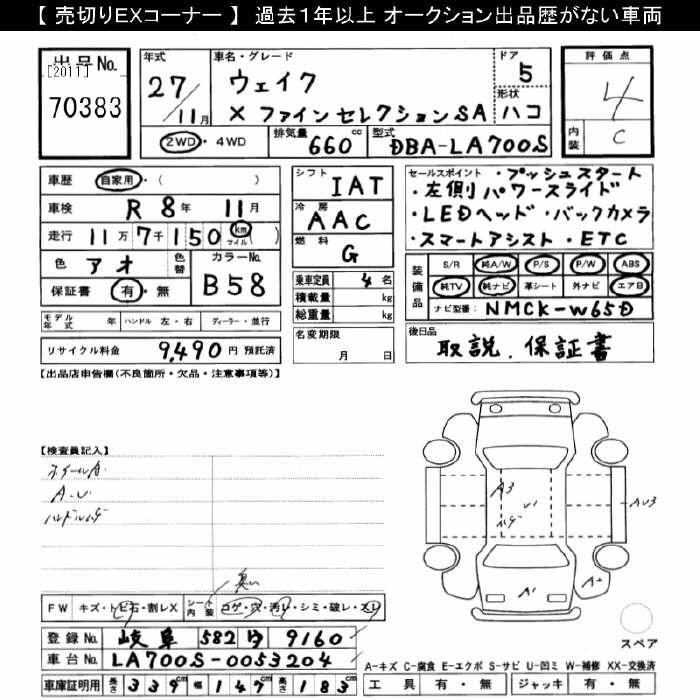 【 売切りEXコーナー 】 過去1年以上 オークション出品歴がない車両
出品No.
[2011]
70383
年式
27/11月
車名・グレード
ウェイク
X ファインセレクションSA
ドア
5
形状
ハコ
2WD・4WD
排気量 660 cc
型式 DBA-LA700S
評価点
4
内装
C
車歴 自家用・( )
車検 R 8年 11月
走行 11万7千150 km マイル ( )
色 アオ
色替
カラーNo.
B58
保証書 有・無
シフト
IAT
冷房
AAC
燃料
G
乗車定員 4名
積載量 kg
総重量 kg
セールスポイント ・プッシュスタート
・左側パワースライド
・LEDヘッド・バックカメラ
・スマートアシスト・ETC
装備品
S/R 純A/W P/S P/W ABS
純TV 純ナビ 革シート 外ナビ エアB
ナビ型番 NMCK-W65D
モデル年式 年
ハンドル 左・右
ディーラー・並行
リサイクル料金 9,490円 預託済
名変期限
月 日
後日品
取説、保証書
【出品店申告欄(不良箇所・欠品・注意事項等)】
【検査員記入】
ホイールA
A.U
ハンドルハゲ
A3
U1
ハゲ
AU3
A1
A2
臭い
FW キズ・トビ石・割レX
シート内装 コゲ・穴・汚レ・シミ・破レ・スレ
登録No. 岐阜 582 ひ 9160
車台No. LA700S-0053204
車庫証明用 長さ 339 幅 147 高さ 183
スペア
A-キズ C-腐食 E-エクボ S-サビ U-凹ミ W-補修 XX-交換済
工具 有・無 ジャッキ 有・無